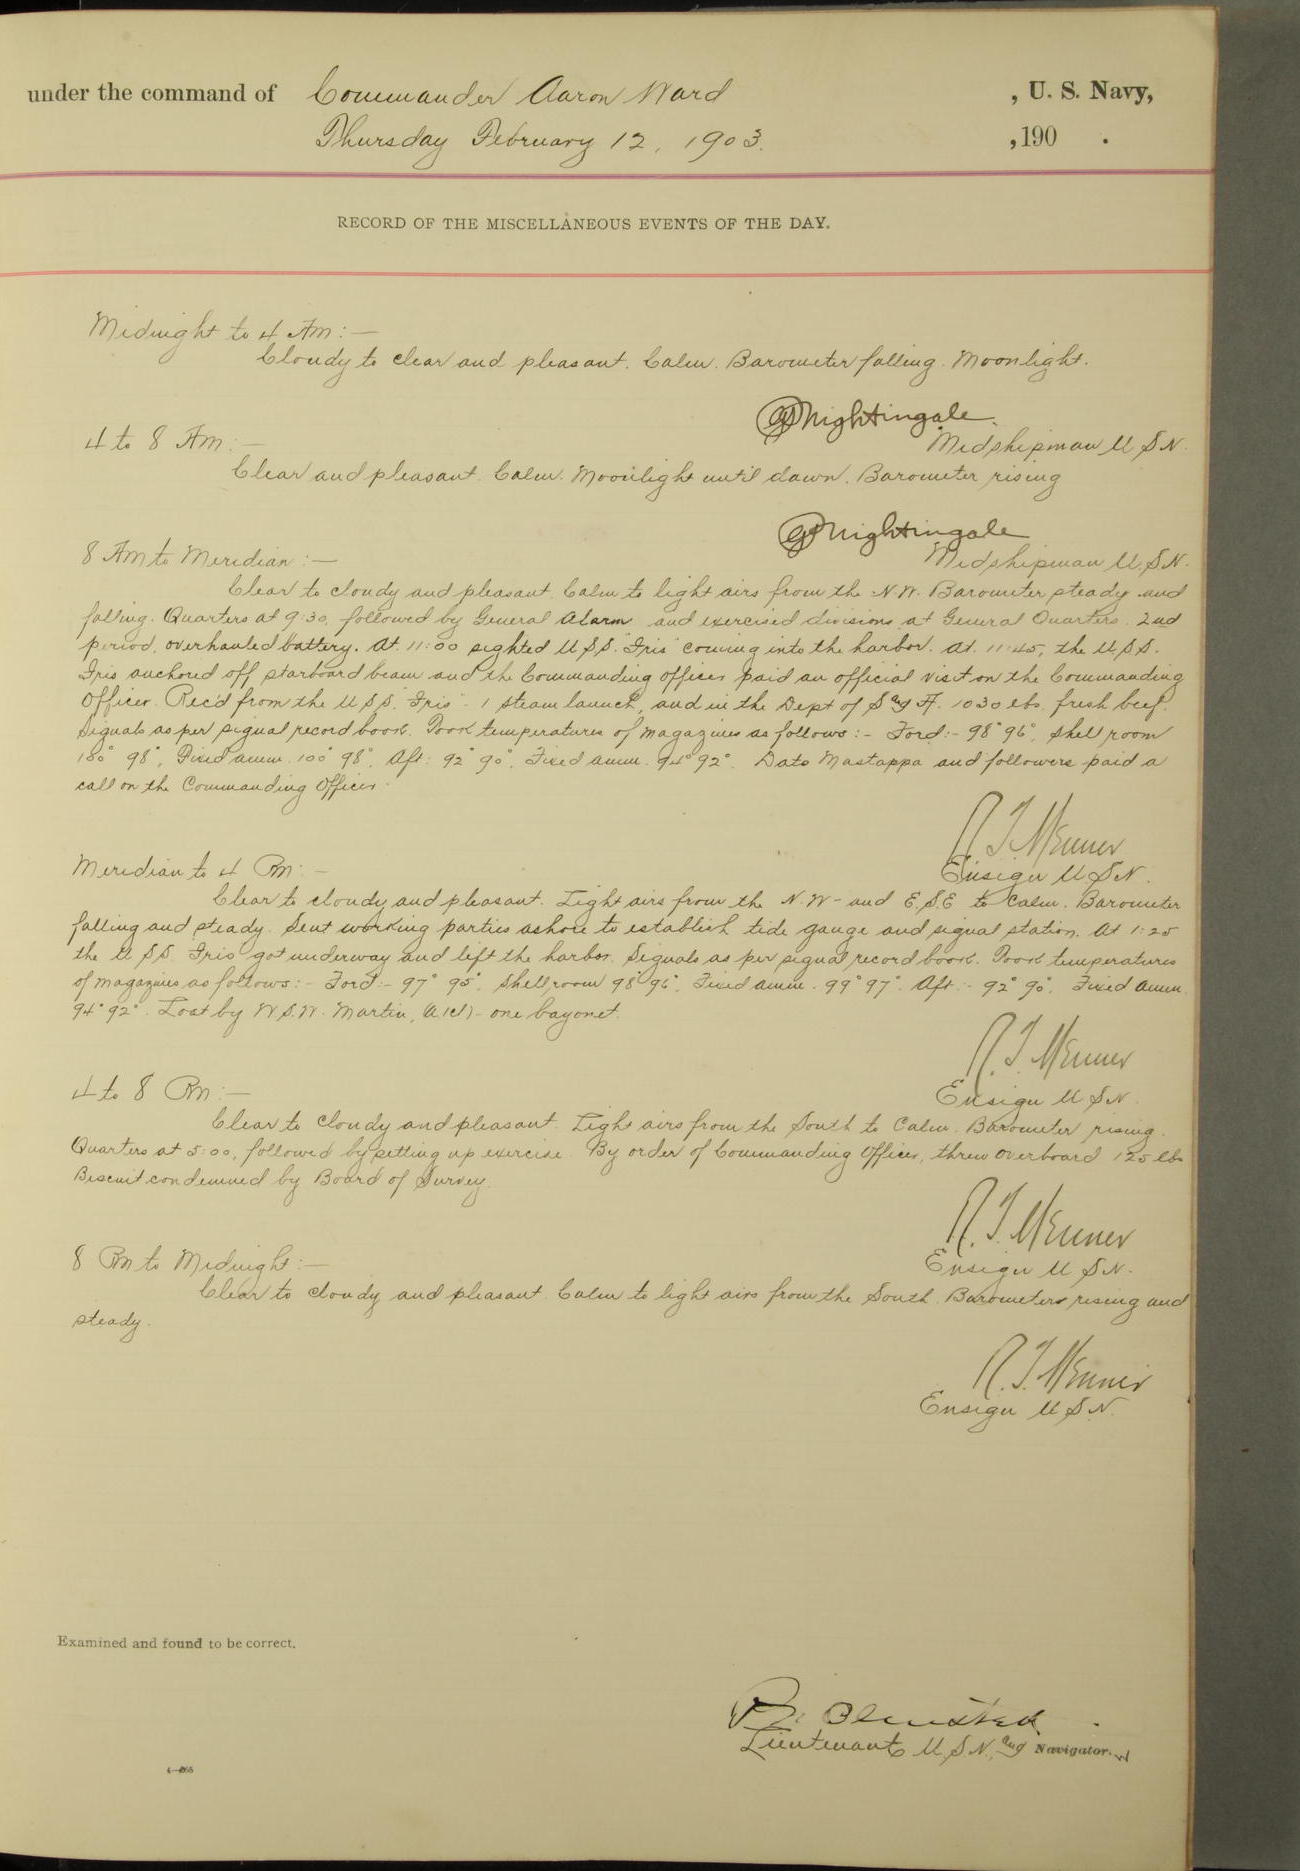 under the command of Commander Aaron Ward , U. S. Navy,
Thursday February 12, 1903. , 190 .
RECORD OF THE MISCELLANEOUS EVENTS OF THE DAY.
Midnight to 4 AM:—
Cloudy to clear and pleasant. Calm. Barometer falling. Moonlight.
Nightingale
4 to 8 AM:— Midshipman U S N.
Clear and pleasant. Calm. Moonlight until dawn. Barometer rising
Nightingale
8 AM to Meridian:— Midshipman U.S.N.
Clear to cloudy and pleasant. Calm to light airs from the N.W. Barometer steady and
falling. Quarters at 9:30, followed by General Alarm and exercised divisions at General Quarters. 2nd
period, overhauled battery. At 11:00 sighted U.S.S. "Iris" coming into the harbor. At 11:45, the U.S.S.
Iris anchored off starboard beam and the Commanding officer paid an official visit on the Commanding
Officer. Rec'd from the U.S.S. "Iris" - 1 steam launch, and in the Dept of S & A. 1030 lbs. fresh beef.
Signals as per signal record book. Took temperatures of magazines as follows:- Ford:- 98° 96°, Shell room
100° 98°, Fixed amm. 100° 98°. Aft: 92° 90°, Fixed amm. 94° 92°. Dato Mastappa and followers paid a
call on the Commanding Officer.
R. T. Menner
Meridian to 4 PM:— Ensign U.S.N.
Clear to cloudy and pleasant. Light airs from the N.W- and E.S.E to Calm. Barometer
falling and steady. Sent working parties ashore to establish tide gauge and signal station. At 1:25
the U.S.S. Iris got underway and left the harbor. Signals as per signal record book. Took temperatures
of magazines as follows:- Ford:- 97° 95°, Shell room 98° 96°, Fixed amm. 99° 97°. Aft:- 92° 90°, Fixed amm.
94° 92°. Lost by W.S.W. Martin, - one bayonet.
R. T. Menner
4 to 8 PM:— Ensign U.S.N.
Clear to cloudy and pleasant. Light airs from the South to Calm. Barometer rising.
Quarters at 5:00, followed by setting up exercise. By order of Commanding Officer, threw overboard 125 lbs
Biscuit condemned by Board of Survey.
R. T. Menner
8 PM to Midnight:— Ensign U.S.N.
Clear to cloudy and pleasant. Calm to light airs from the South. Barometer rising and
steady.
R. T. Menner
Ensign U.S.N.
Examined and found to be correct.
Olmsted
Lieutenant U.S.N., and Navigator.